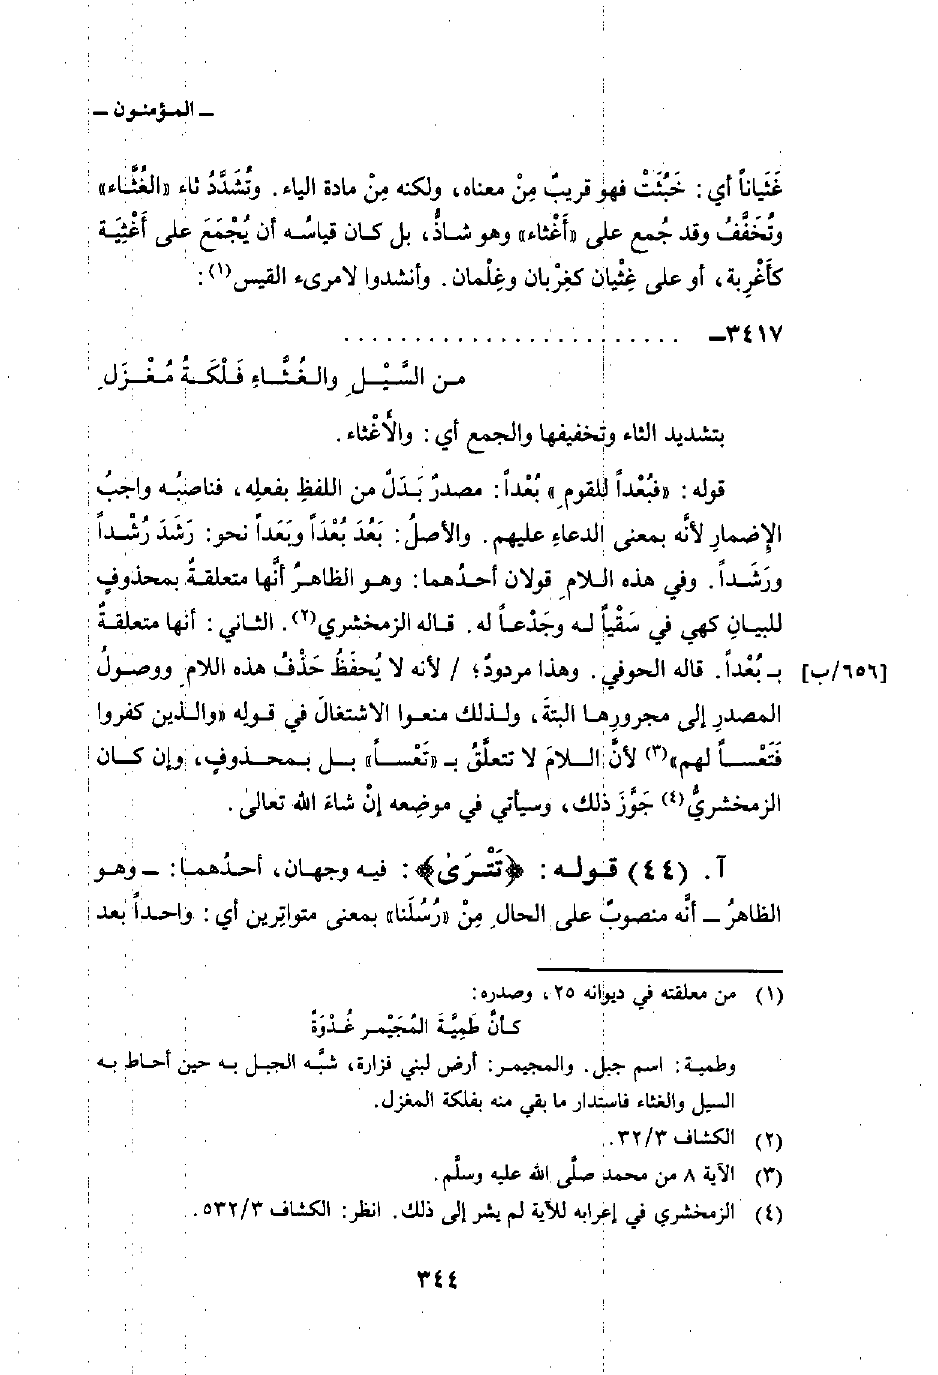 ـ المـؤمنـون ـ
غَثَياناً أي: خَبُثَتْ فهو قريبٌ مِنْ معناه، ولكنه مِنْ مادة الياء. وتُشَدَّدُ ثاء «الغُثَّاء»
وتُخَفَّفُ وقد جُمع على «أَغْثاء» وهو شاذٌّ، بل كان قياسُه أن يُجْمَعَ على أَغْثِيَة
كأَغْرِبة، أو على غِثْيان كغِرْبان وغِلْمان. وأنشدوا لامرىء القيس(١):
٣٤١٧ـ .......................
مـن السَّيْـلِ والغُثَّـاءِ فَـلْكَـةُ مُغْـزَلِ
بتشديد الثاء وتخفيفها والجمع أي: والأَغْثاء.
قوله: «فبُعْداً للقومِ» بُعْداً: مصدرٌ بَدَلٌ من اللفظِ بفعلِه، فناصبُه واجبُ
الإِضمارِ لأنَّه بمعنى الدعاءِ عليهم. والأصلُ: بَعُدَ بُعْدَاً وبَعَداً نحو: رَشَدَ رُشْداً
ورَشَداً. وفي هذه اللامِ قولان أحدُهما: وهو الظاهرُ أنَّها متعلقةٌ بمحذوفٍ
للبيانِ كهي في سَقْياً له وجَدْعاً له. قاله الزمخشري(٢). الثاني: أنها متعلقةٌ
[٦٥٦/ب] بـ بُعْداً. قاله الحوفي. وهذا مردودٌ؛ / لأنه لا يُحفَظُ حَذْفُ هذه اللامِ ووصولُ
المصدرِ إلى مجرورِها البتةَ، ولذلك منعوا الاشتغالَ في قولِه «والذين كفروا
فَتَعْساً لهم»(٣) لأنَّ اللامَ لا تتعلَّقُ بـ «تَعْساً» بل بمحذوفٍ، وإن كان
الزمخشريُّ(٤) جَوَّزَ ذلك، وسيأتي في موضعِه إنْ شاءَ الله تعالىٰ.
آ. (٤٤) قوله: ﴿تَتْرَىٰ﴾: فيه وجهان، أحدُهما: ـ وهو
الظاهرُ ـ أنَّه منصوبٌ على الحالِ مِنْ «رُسُلَنا» بمعنى متواتِرين أي: واحداً بعد
(١) من معلقته في ديوانه ٢٥، وصدره:
كـأنَّ طَمِيَّةَ المُجَيْمـر غُـدْوَةً
وطمية: اسم جبل. والمجيمر: أرض لبني فزارة، شبَّه الجبل به حين أحاط به
السيل والغثاء فاستدار ما بقي منه بفلكة المغزل.
(٢) الكشاف ٣٢/٣.
(٣) الآية ٨ من محمد صلَّى الله عليه وسلَّم.
(٤) الزمخشري في إعرابه للآية لم يشر إلى ذلك. انظر: الكشاف ٥٣٢/٣.
٣٤٤